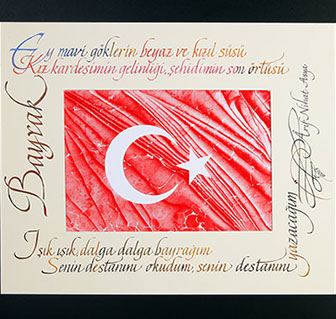 Ey mavi göklerin beyaz ve kızıl süsü
Kız kardeşimin gelinliği, şehidimin son örtüsü
Bayrak
Işık ışık, dalga dalga bayrağım
Senin destanını okudum, senin destanını
yazacağım
Arif Nihat Asya